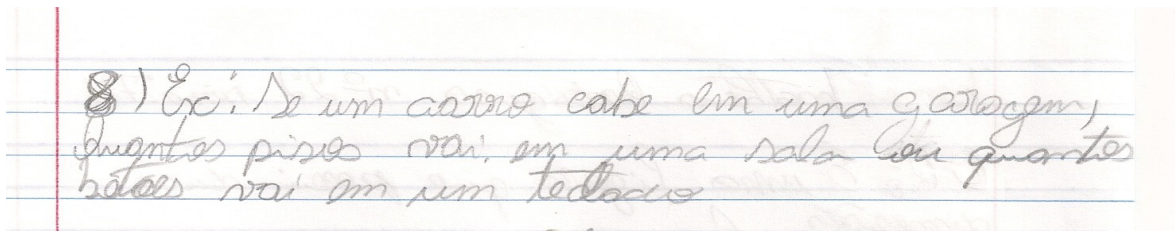 8) Ex: Se um carro cabe em uma garagem,
quantos pisos vai em uma sala ou quantos
botões vai em um teclado